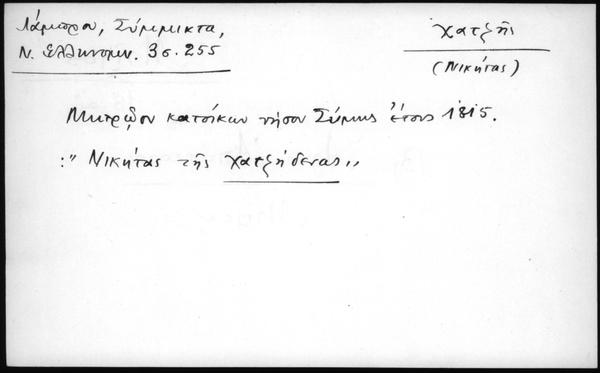 Λάμπρου, Σύμμικτα,
Ν. Ελληνομν. 3σ. 255
Χατζῆς
(Νικήτας)
Μητρῷον κατοίκων νήσου Σύμης ἔτους 1815.
:" Νικήτας τῆς Χατζήδενας,,